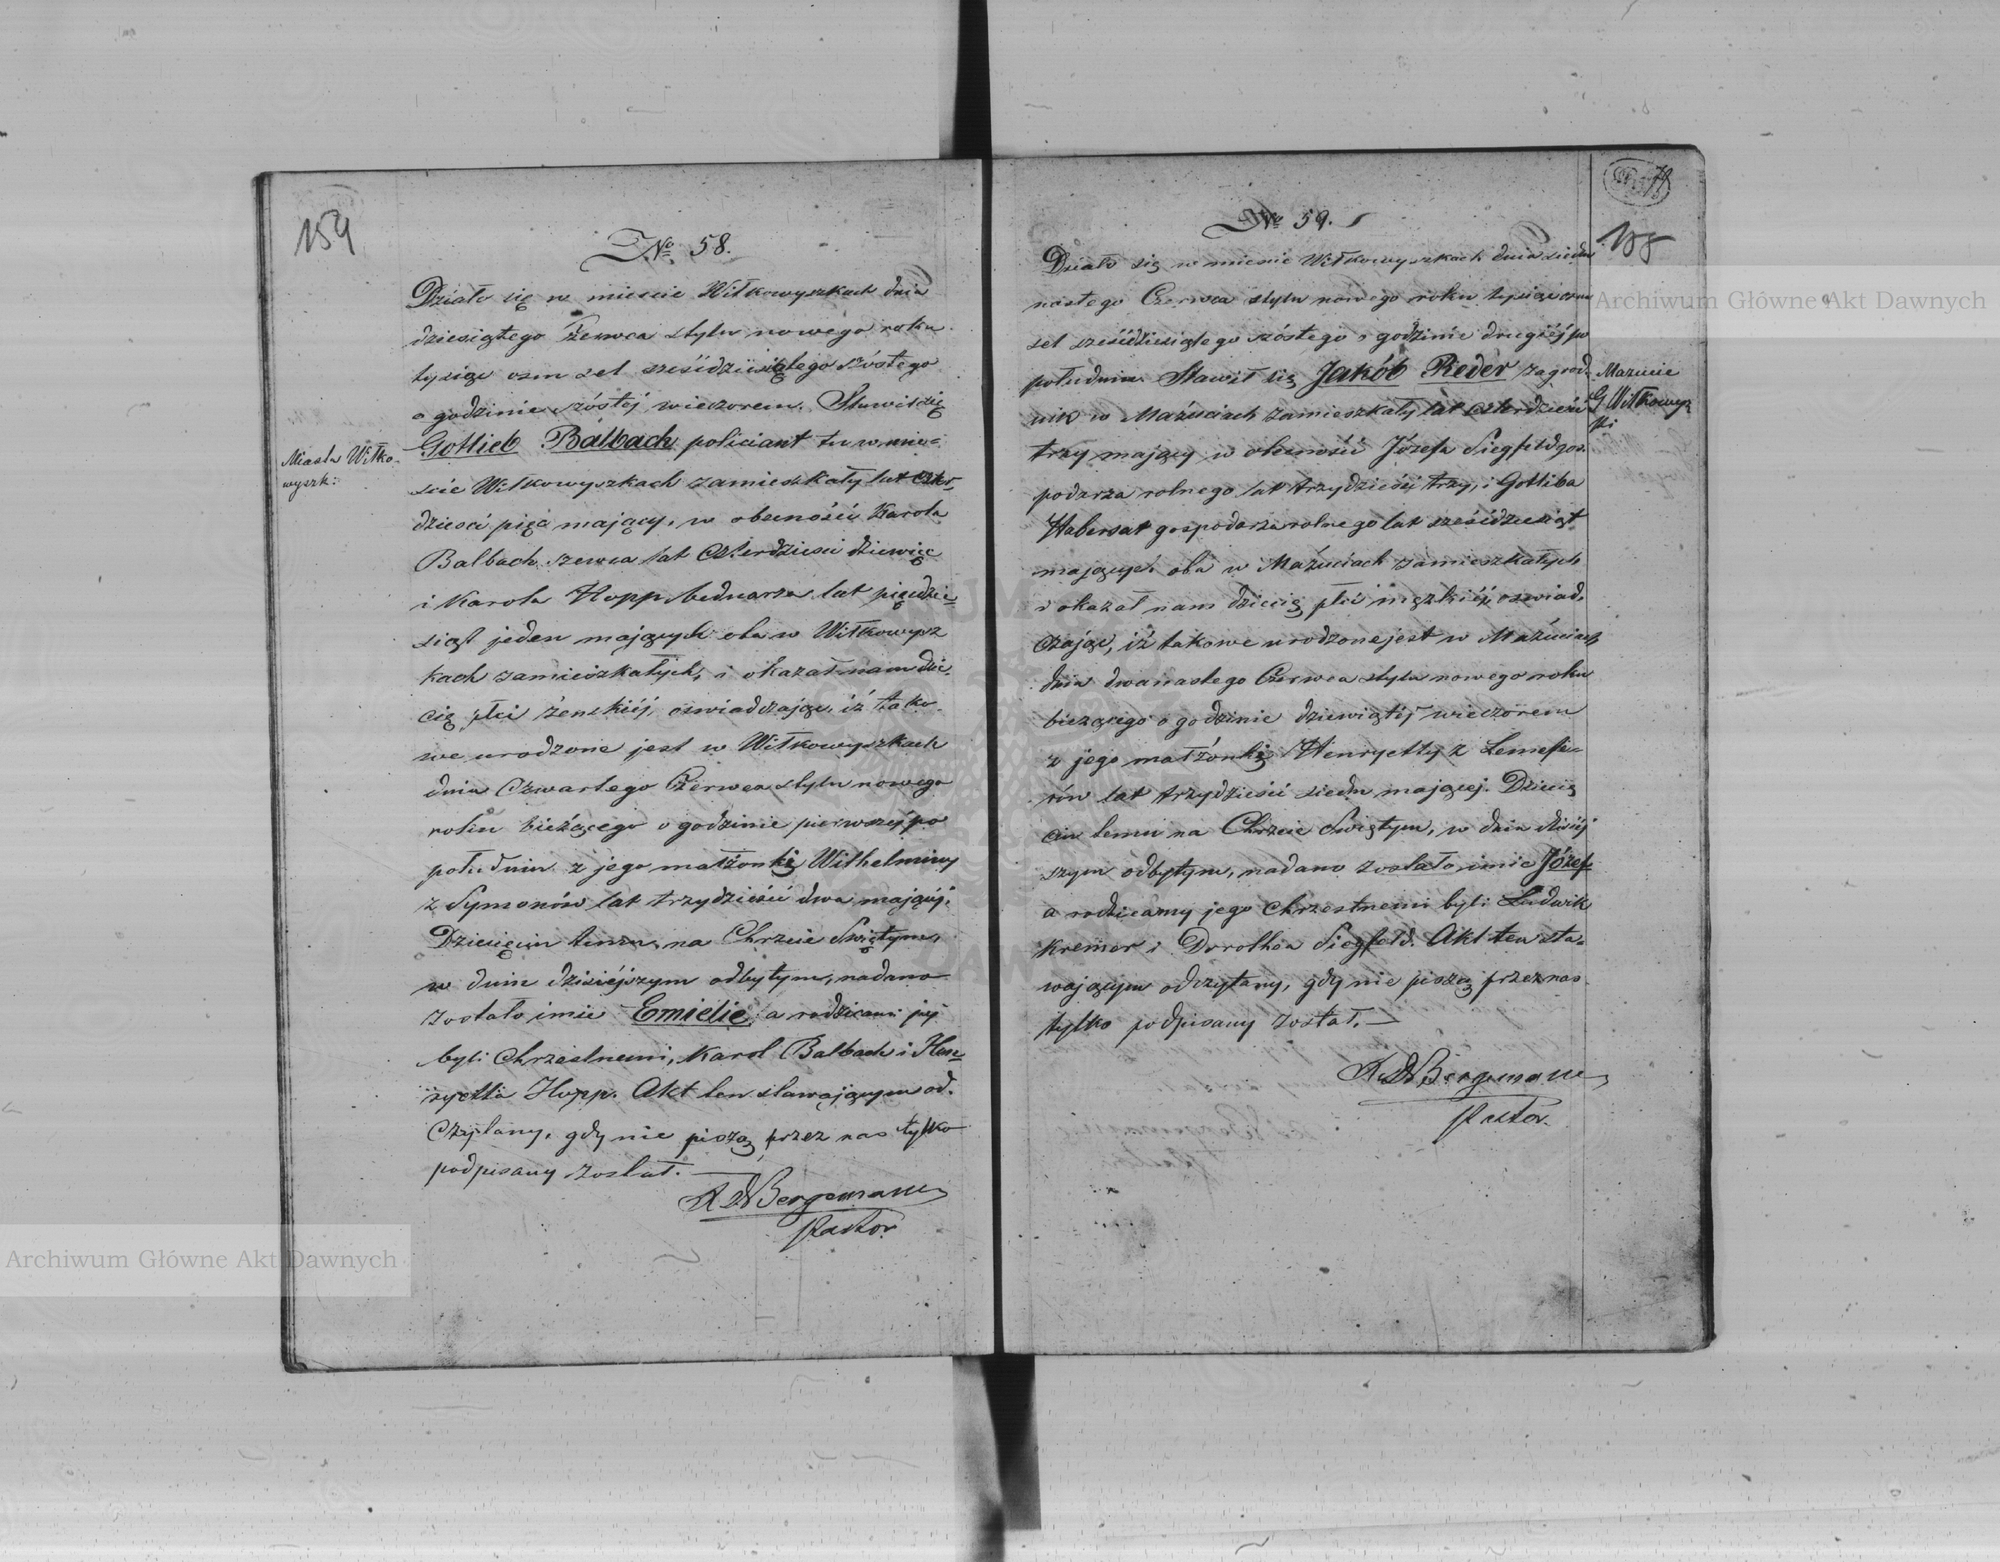 154
№ 58.
Działo się w mieście Wiłkowyszkach dnia
dziesiątego Czerwca stylu nowego roku
tysiąc osm set sześćdziesiątego szóstego
o godzinie szóstej wieczorem. Stawił się
Gottlieb Balbach policiant tu w mie=
Miasta Wiłko-
wyszk:
ście Wiłkowyszkach zamieszkały lat czter-
dzieści pięć mający, w obecności Karola
Balbach szewca lat czterdzieści dziewięć
i Karola Hopp bednarza lat pięćdzie=
siąt jeden mających oba w Wiłkowysz
kach zamieszkałych, i okazał nam dzie-
cię płci żeńskiéj, oswiadczając, iż tako-
we urodzone jest w Wiłkowyszkach
dnia Czwartego Czerwca stylu nowego
roku bieżącego o godzinie pierwszej po
południu z jego małżonki Wilhelminy
z Symonów lat trzydzieści dwa mającéj.
Dziecięciu temu na Chrzcie Świętym,
w dniu dzisiéjszym odbytym, nadano
zostało imie Emielie, a rodzicami jej
byli chrzestnemi, Karol Balbach i Hen=
ryctta Hopp. Akt ten stawającym od-
czytany, gdy nie piszą przez nas tylko
podpisany został.
Bergemann
Pastor.
№ 59.
Działo się w miescie Wiłkowyszkach dnia siedm
nastego Czerwca stylu nowego roku tysiąc osm
set sześćdziesiątego szóstego o godzinie drugiéj po
południu. Stawił się Jakób Rieder zagrod-
Mazucie
G Wiłkowysz
ki
nik w Mażuciach zamieszkały lat czterdzieści
trzy mający w obecności Józefa Siegfeld gos-
podarza rolnego lat trzydzieści trzy, i Gottliba
Habersat gospodarza rolnego lat sześćdziesiąt
mających oba w Mażuciach zamieszkałych
i okazał nam dziecię płci męzkiéj, oswiad-
czając, iż takowe urodzone jest w Mażuciach
dnia dwanastego Czerwca stylu nowego roku
bieżącego o godzinie dziewiątéj wieczorem
z jego małżonki Henryetty z
lat trzydzieści siedm mającej. Dziecię
ciu temu na Chrzcie Świętym, w dniu dzisiéj
szym odbytym, nadano zostało imie Józef
a rodzicamy jego chrzestnemi byli Ludwik
Kremer i Dorothea Siegfeld. Akt ten sta-
wającym odczytany, gdy nie piszą przez nas
tylko podpisany został.
Bergemann
Pastor.
Archiwum Główne Akt Dawnych
Archiwum Główne Akt Dawnych